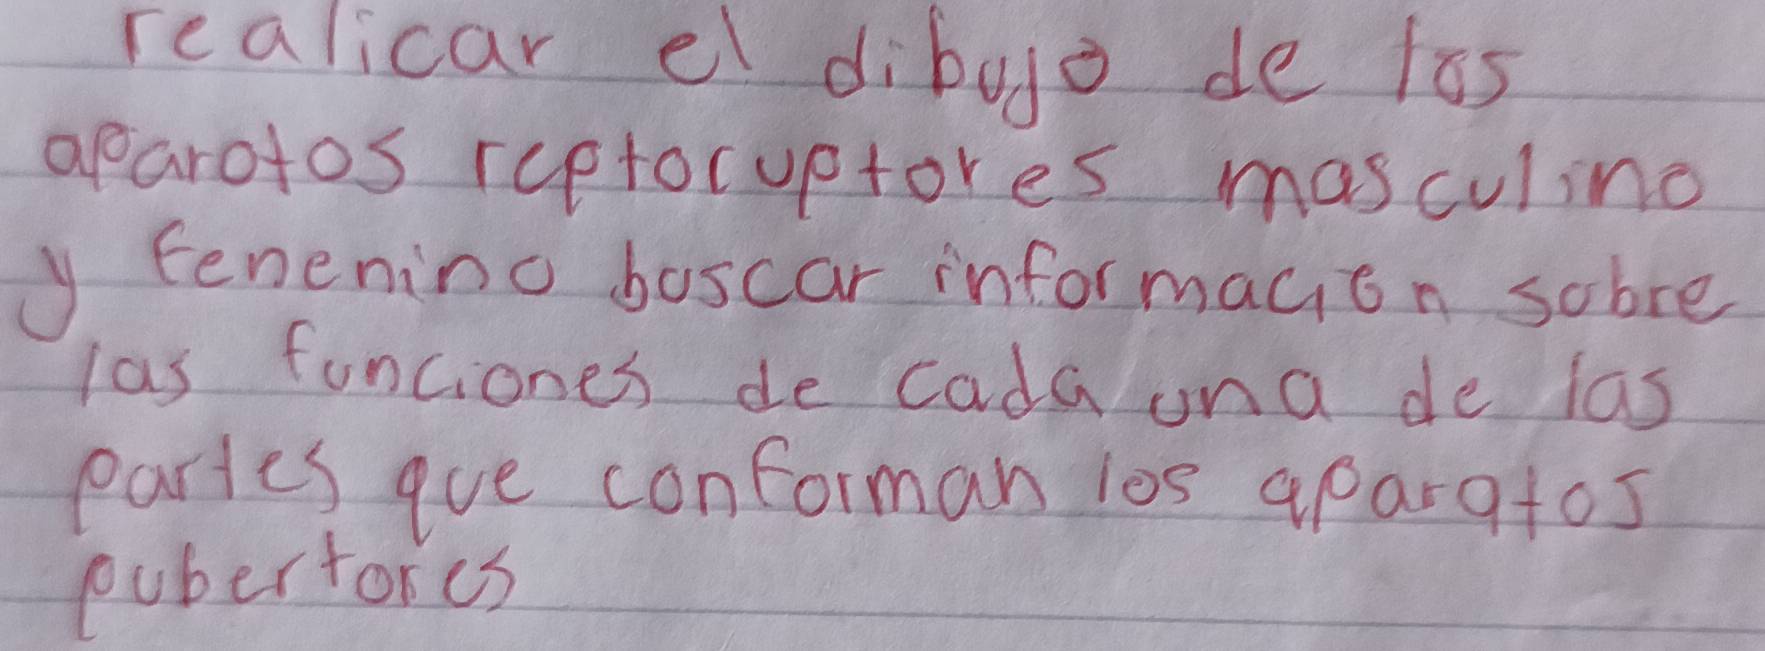 realicar el dibujo de los
aparotos rcptoruptores masculino
y fenenino buscar informacion sobre
las funciones de cada una de las
partes que conforman los aparatos
pubertores